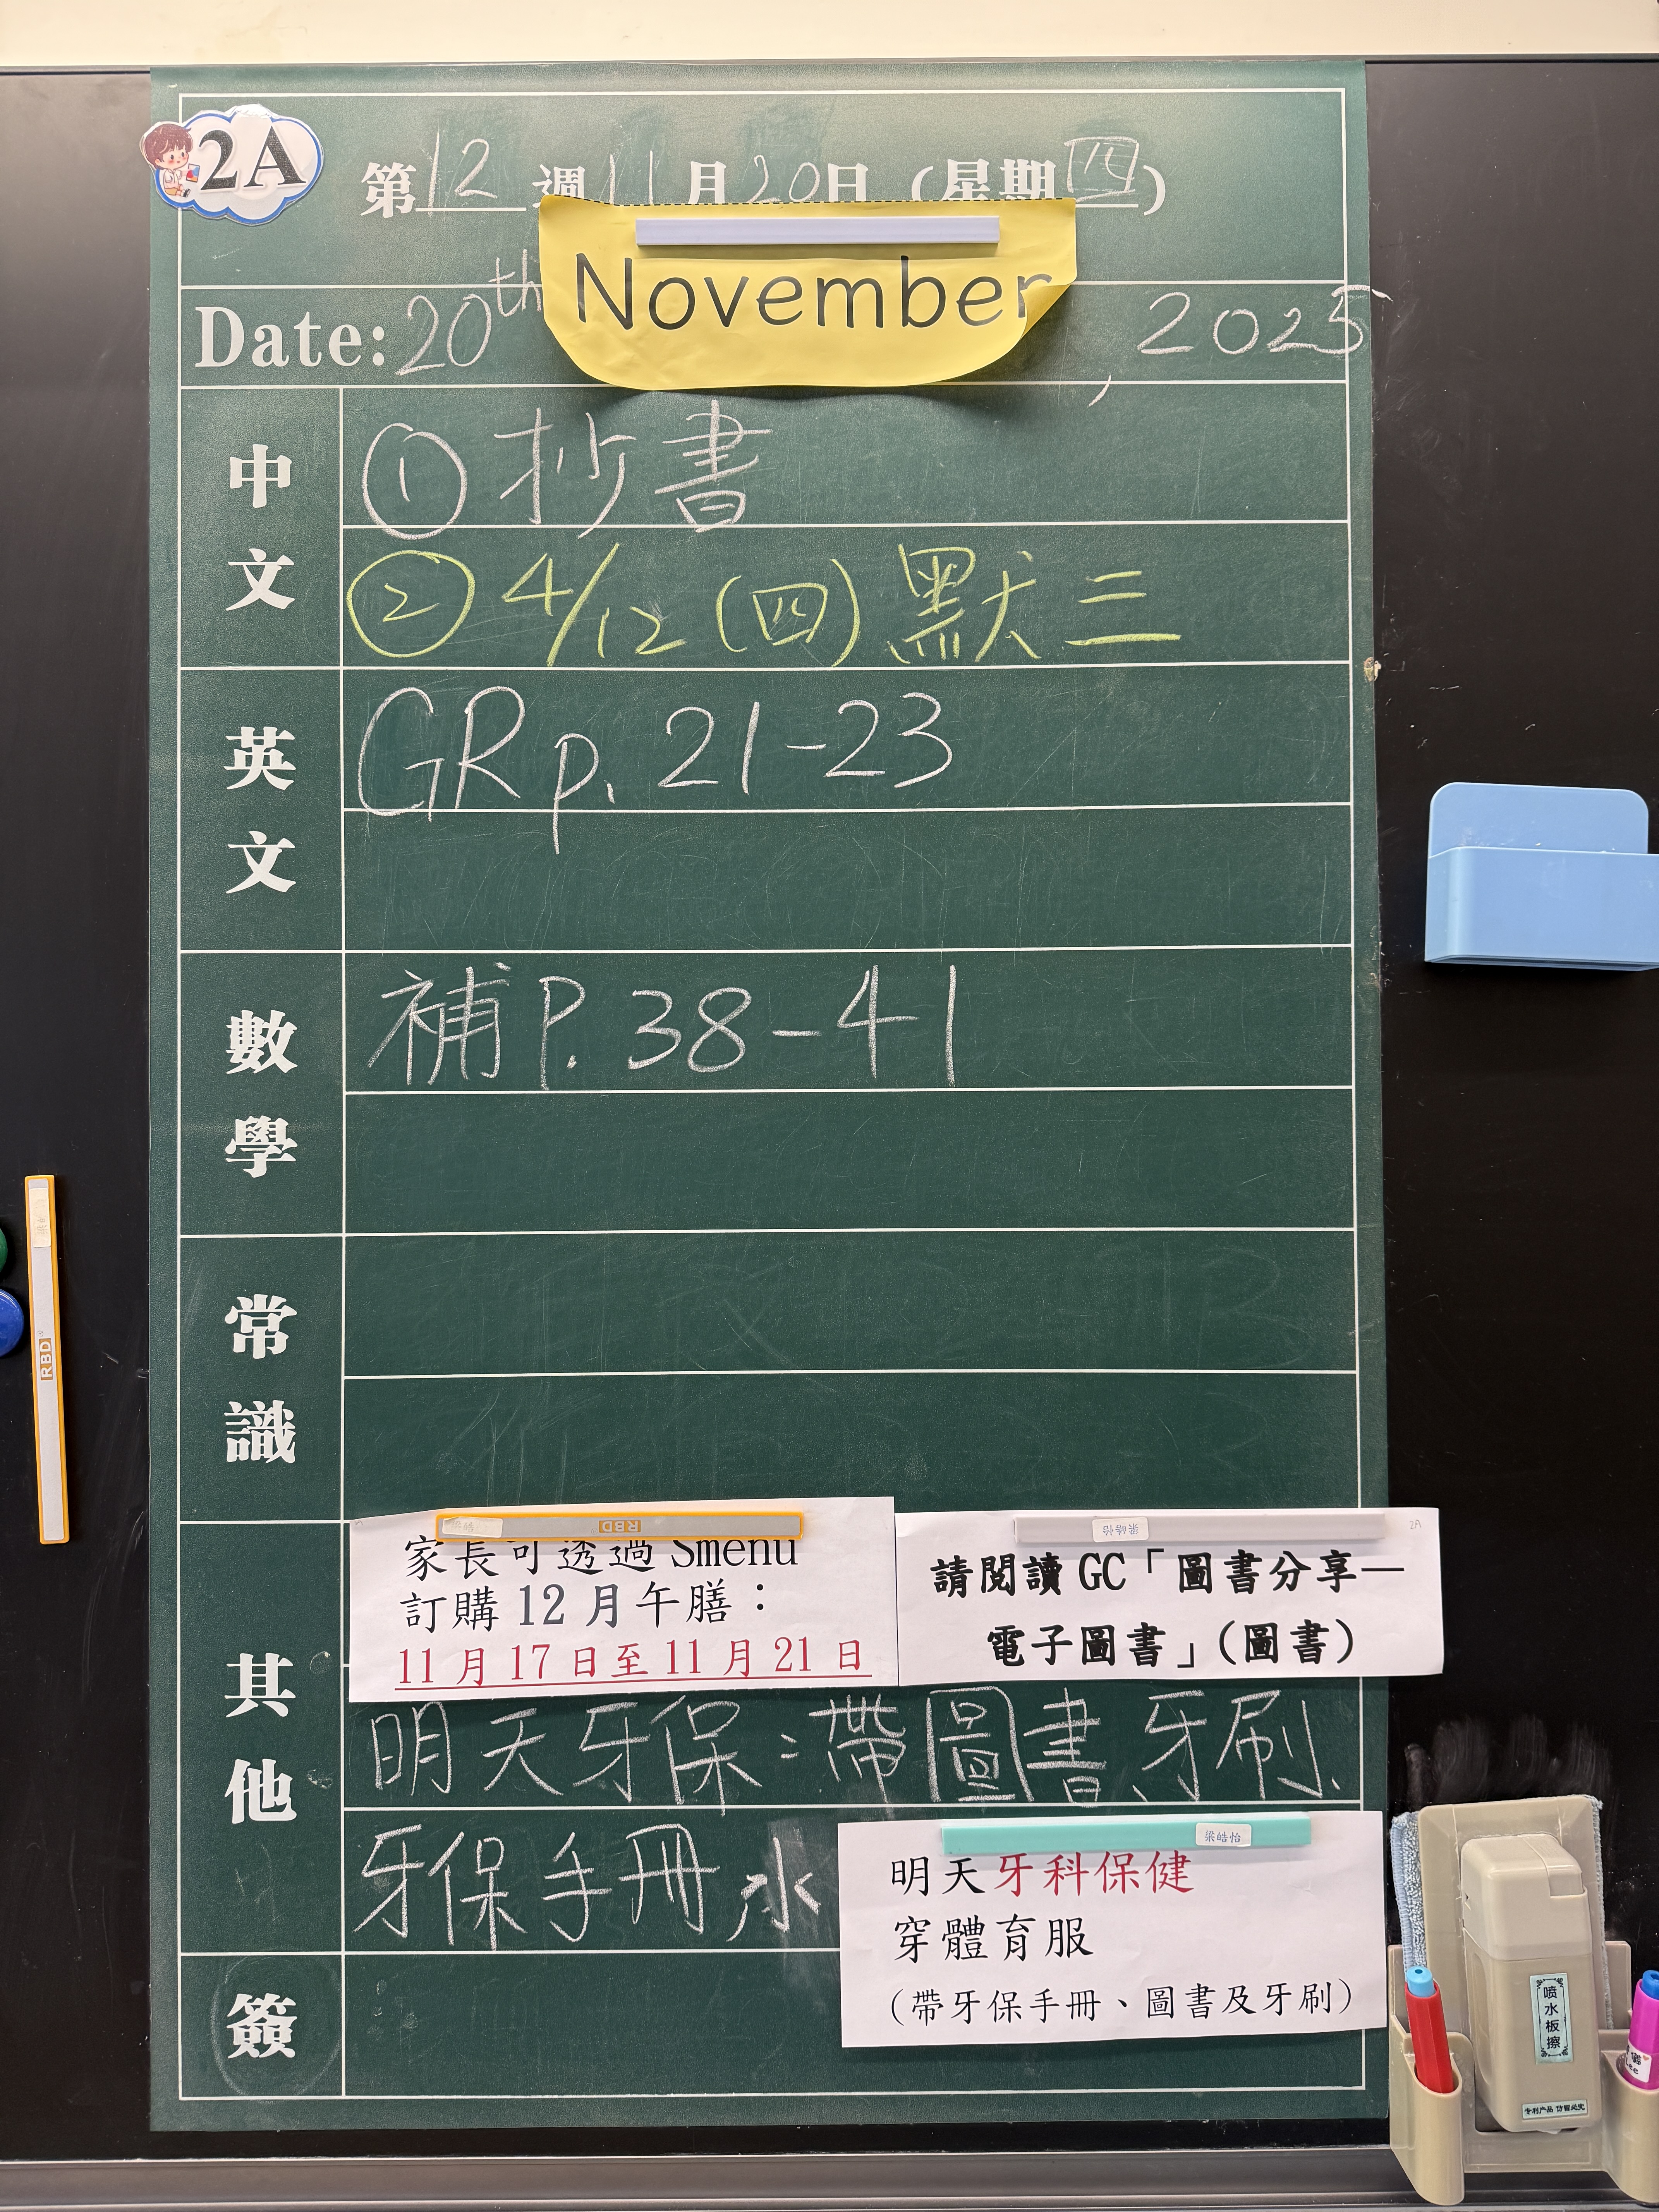 2A
第12週11月20日（星期四）
Date: 20th November, 2025
中文
① 抄書
② 4/12 (四) 默三
英文
GR p. 21-23
數學
補 P. 38-41
常識
其他
家長可透過 Smenu
訂購 12 月午膳：
11 月 17 日至 11 月 21 日
請閱讀 GC「圖書分享—
電子圖書」（圖書）
2A
梁皓怡
RBD
明天牙保：帶圖書、牙刷、
牙保手冊、水
梁皓怡
明天牙科保健
穿體育服
（帶牙保手冊、圖書及牙刷）
簽
RBD
喷水板擦
专利产品 仿冒必究